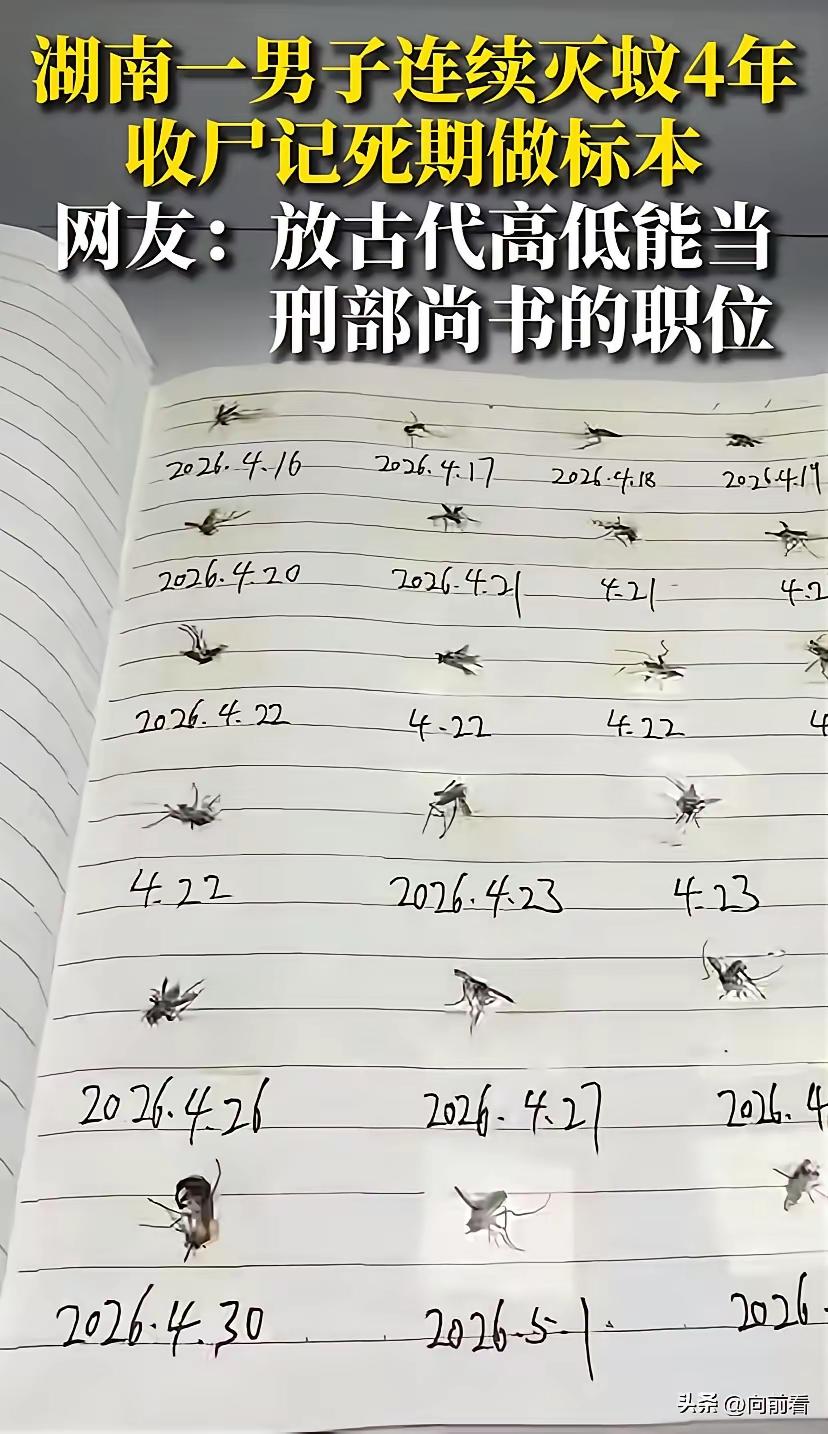 湖南一男子连续灭蚊4年
收尸记死期做标本
网友：放古代高低能当
刑部尚书的职位
2026.4.16 2026.4.17 2026.4.18 2026.4.19
2026.4.20 2026.4.21 4.21 4.2
2026.4.22 4.22 4.22 4
4.22 2026.4.23 4.23
2026.4.26 2026.4.27 2026.4
2026.4.30 2026.5.1 2026.
头条 @向前看